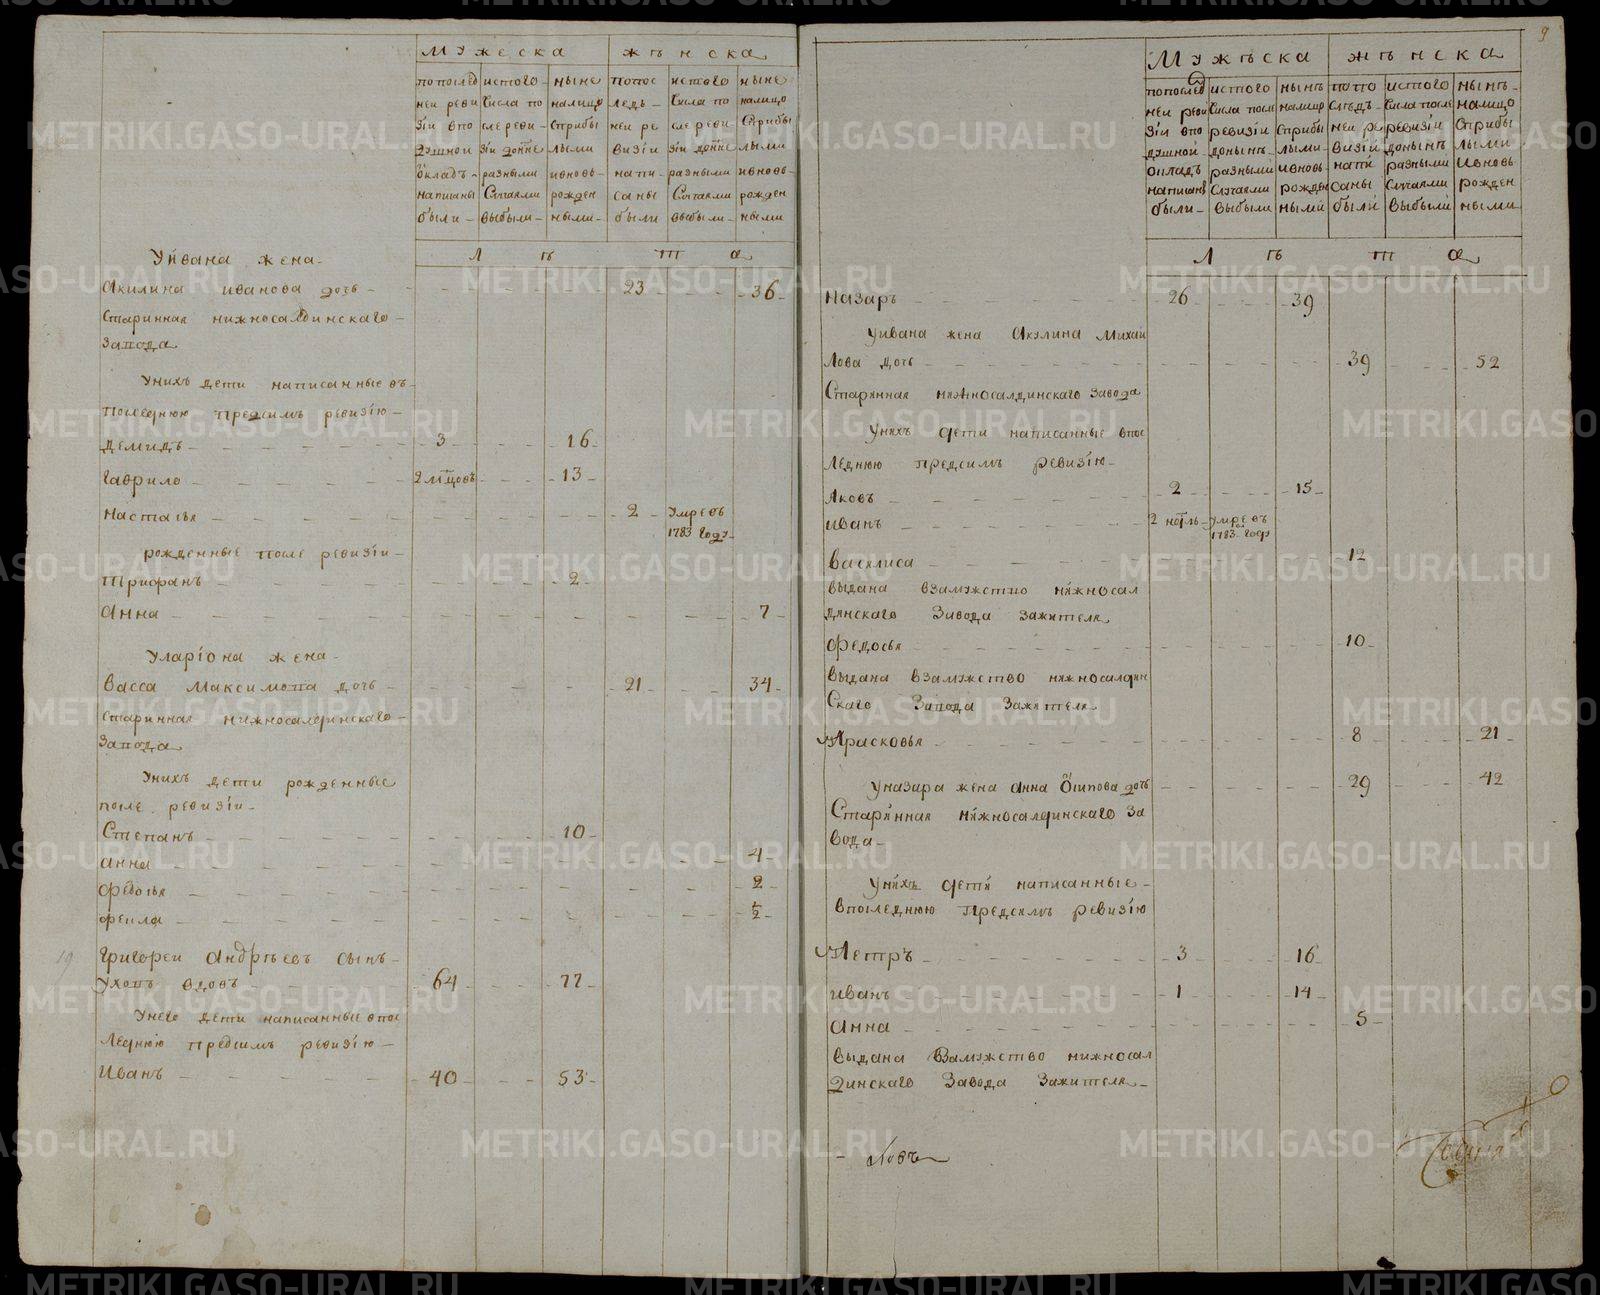 Мужеска женска
попослед неи реви зіи впо душнои окладъ написаны были
истого числа по слереви зіи доныне разными Случаями выбыли
ныне налицо Сприбы лыми ивновь рожден ными
попос ледъ неи ре визіи напи саны были
истого Числа по слереви зіи доныне разными Случаями выбыли
ныне налицо Сприбы лыми ивновь рожден ными
Л ѣ т а
Уйвана жена
Акилина иванова дочь 23 36
Старинная нижносалдинскаго
Завода
Унихъ дети написанные въ
последнюю предсимъ ревизію
Демидъ 3 16
Гаврило 2 мцовъ 13
Настасья 2 умре въ
1783 году
рожденные после ревизіи
Трифанъ 2
Анна 7
Уларіона жена
Васса Максимова дочь 21 34
Старинная нижносалдинскаго
Завода
Унихъ дети рожденные
после ревизіи
Степанъ 10
анна 4
Федосья 2
Фекла ½
19
Григореи Андрѣевъ сынъ
Уховъ вдовъ 64 77
Унего дети написанные впос
Леднюю предсимъ ревизію
Иванъ 40 53
9
Мужѣска жѣнска
попослед неи реви зіи впо душной окладъ написаны были
истого Числа после ревизіи донынѣ разными Случаями выбыли
нынѣ налицо Сприбы лыми ивновь рожден ными
попо слѣдъ неи ре визіи напи саны были
истого Числа после ревизіи донынѣ разными Случаями выбыли
нынѣ налицо Сприбы лыми Ивновь рожден ными
Л ѣ т а
Назаръ 26 39
Уивана жена Акулина Михаи
Лова дочь 39 52
Старинная нижносалдинскаго завода
Унихъ дети написанные впос
Леднюю предсимъ ревизію
Яковъ 2 15
иванъ 2 нѣдль умре въ
1783 году
Василиса 12
выдана взамужство нижносал
динскаго Завода Зажителя
Федосья 10
Выдана взамужство нижносалдин
Скаго Завода Зажителя
Прасковья 8 21
Уназара жена анна Осипова дочь 29 42
Старинная нижносалдинскаго За
вода
Унихъ дети написанные
впоследнюю предсимъ ревизію
Петръ 3 16
иванъ 1 14
Анна 5
выдана Взамужство нижносал
динскаго Завода Зажителя
METRIKI.GASO-URAL.RU